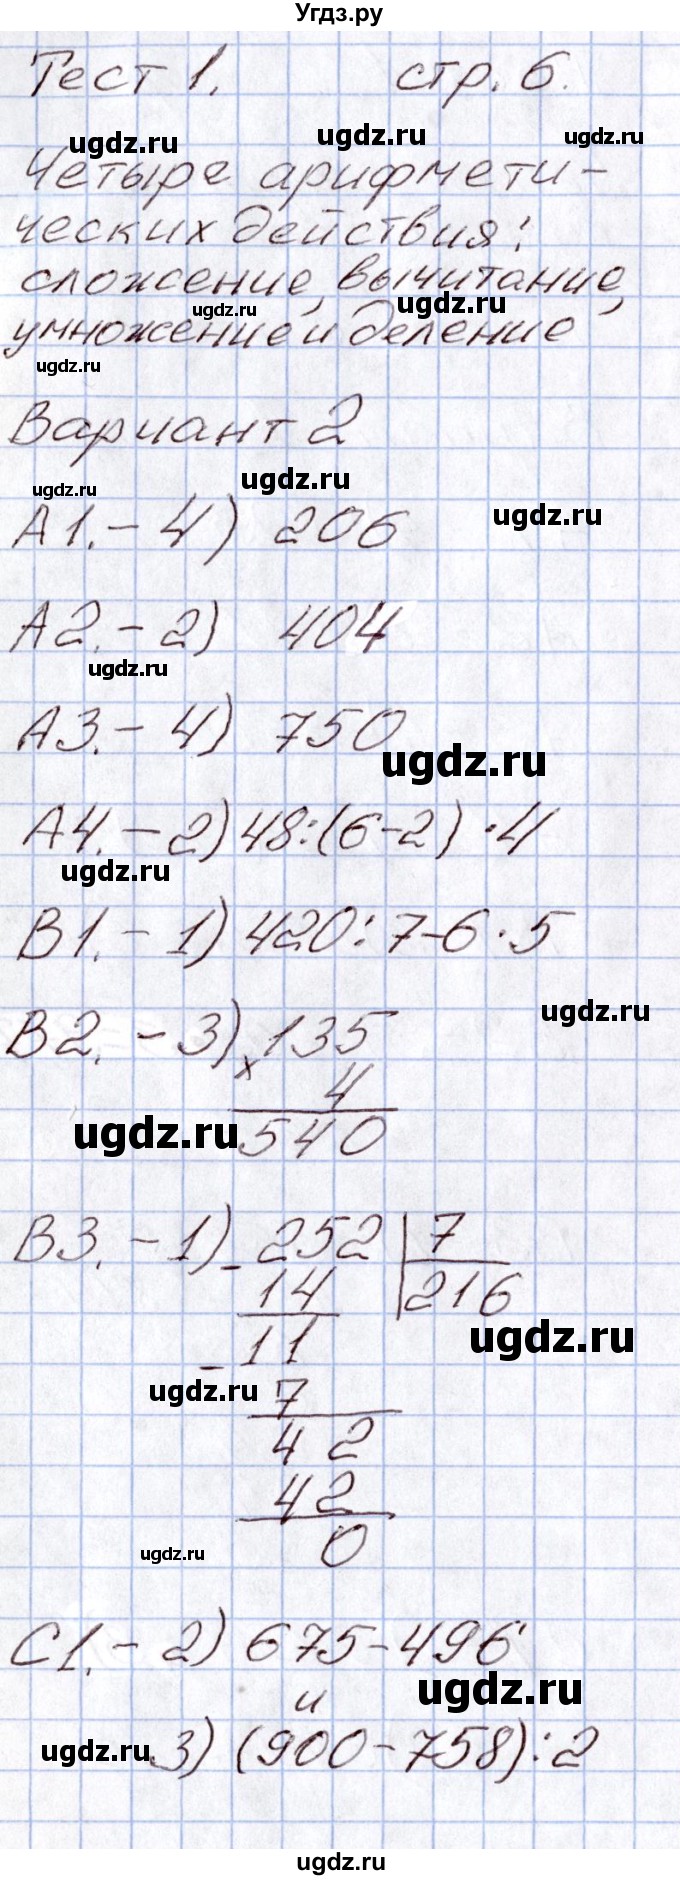 Угдз.ру
Тест 1. стр. 6.
ugdz.ru ugdz.ru ugdz.ru
Четыре арифмети-
ческих действия:
сложение, вычитание,
ugdz.ru ugdz.ru
умножение и деление
ugdz.ru
Вариант 2
ugdz.ru ugdz.ru
А1.- 4) 206
ugdz.ru
А2.- 2) 404
ugdz.ru
А3.- 4) 750
ugdz.ru
А4. - 2) 48:(6-2)·4
ugdz.ru
В1.- 1) 420:7-6·5
ugdz.ru
В2. - 3) х135
4
ugdz.ru 540
В3. - 1) - 252 | 7
14 216
ugdz.ru
- 11
ugdz.ru 7
42
42
ugdz.ru 0
С1.- 2) 675-496
и ugdz.ru
ugdz.ru 3) (900-758):2
ugdz.ru